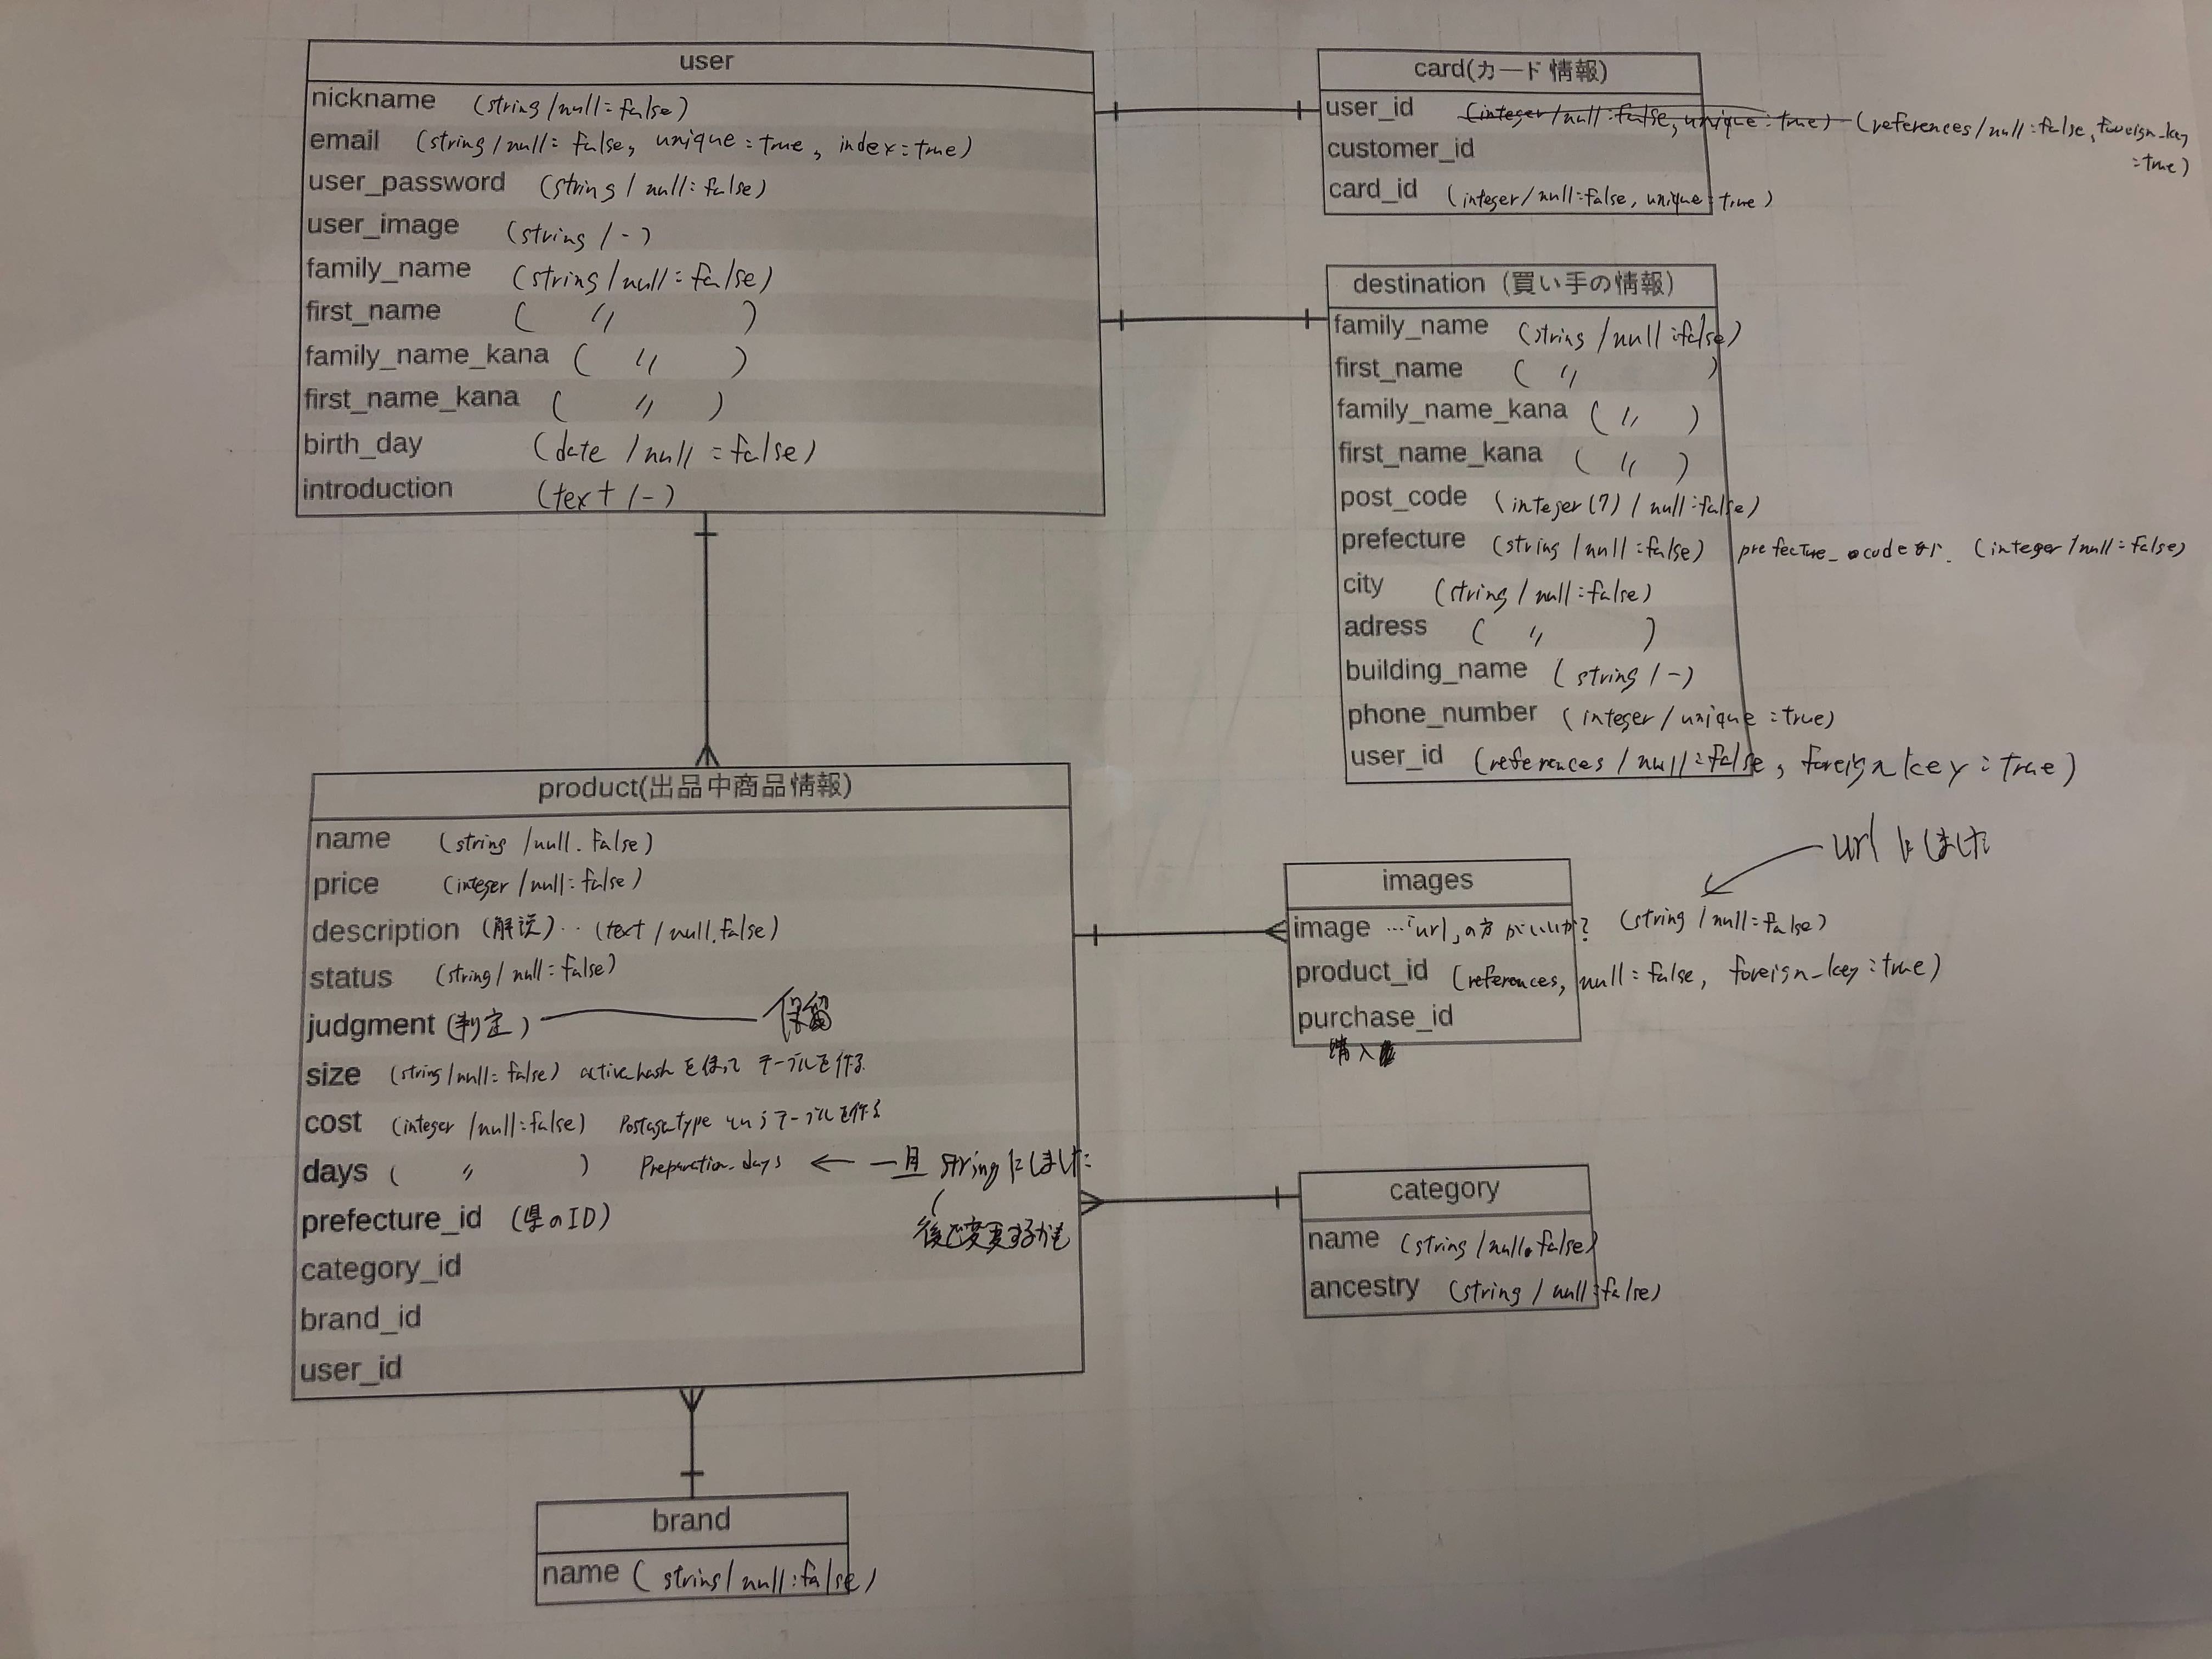 user
nickname (string/null:false)
email (string/null: false, unique:true, index:true)
user_password (string/null:false)
user_image (string/-)
family_name (string/null:false)
first_name ( 〃 )
family_name_kana ( 〃 )
first_name_kana ( 〃 )
birth_day (date/null:false)
introduction (text/-)
card(カード情報)
user_id (integer/null:false, unique:true) (references/null:false, foreign_key
:true)
customer_id
card_id (integer/null:false, unique:true)
destination (買い手の情報)
family_name (string/null:false)
first_name ( 〃 )
family_name_kana ( 〃 )
first_name_kana ( 〃 )
post_code (integer(7)/null:false)
prefecture (string/null:false) (integer/null:false)
city (string/null:false)
adress ( 〃 )
building_name (string/-)
phone_number (integer/unique:true)
user_id (references/null:false, foreign key:true)
product(出品中商品情報)
name (string/null.false)
price (integer/null:false)
description (解説)‥(text/null.false)
status (string/null:false)
judgment (判定) 保留
size (string/null:false) activehash を使って テーブルを作る
cost (integer/null:false) Postagetype というテーブルを作る
days ( 〃 ) Preparation_days ← 一旦 stringにしました
後で変更するかも
prefecture_id (県のID)
category_id
brand_id
user_id
urlにしました
images
image …「url」の方がいいか? (string/null:false)
product_id (references, null:false, foreign_key:true)
purchase_id
購入
category
name (string/null.false)
ancestry (string/null:false)
brand
name (string/null:false)